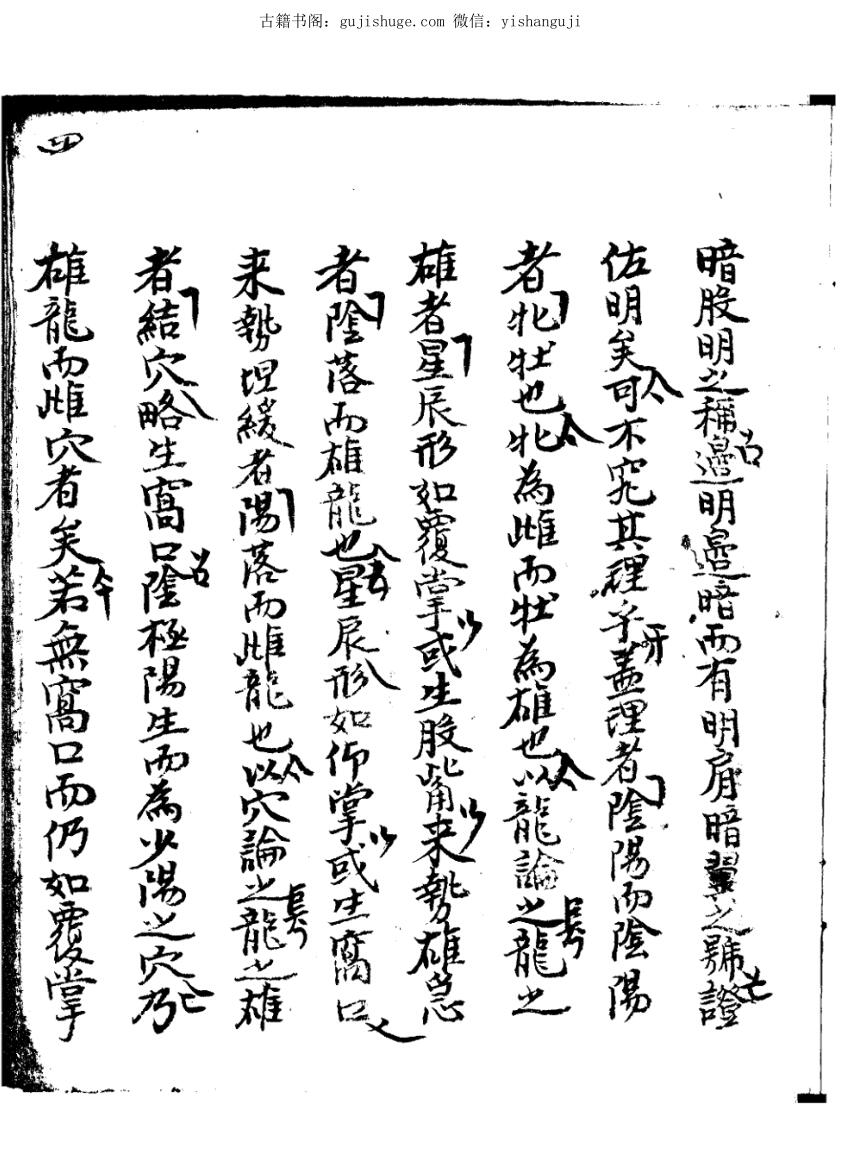 古籍书阁：gujishuge.com 微信：yishanguji
四
暗股明之稱邉明邉暗而有明肩暗翼之號證
佐明矣可不究其理乎盖理者陰陽而陰陽
者牝牡也牝為雌而牡為雄也以龍論之龍之
雄者星辰形如覆掌或生股觜来勢雄急
者陰落而雄龍也星辰形如仰掌或生窩口
来勢坦緩者陽落而雌龍也以穴論之龍之雄
者結穴略生窩口陰極陽生而為少陽之穴乃
雄龍而雌穴者矣若無窩口而仍如覆掌